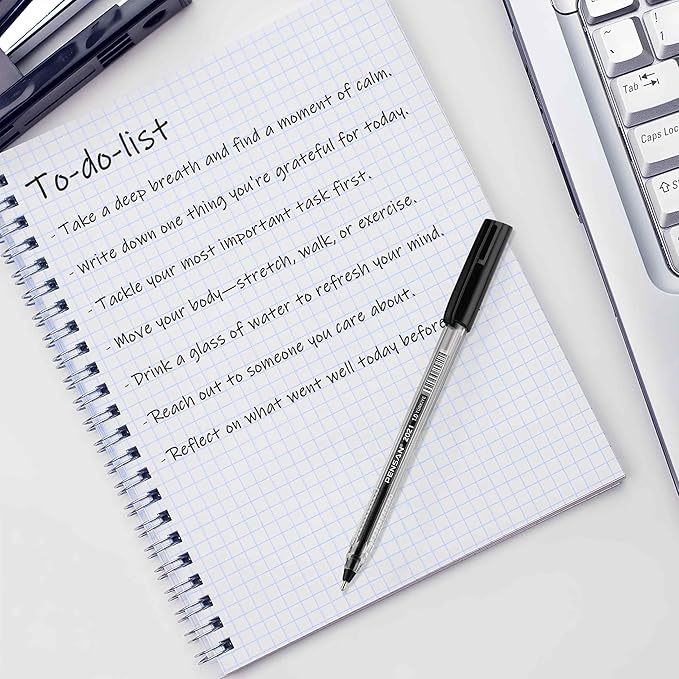 To-do-list
- Take a deep breath and find a moment of calm.
- Write down one thing you're grateful for today.
- Tackle your most important task first.
- Move your body—stretch, walk, or exercise.
- Drink a glass of water to refresh your mind.
- Reach out to someone you care about.
- Reflect on what went well today before
PENSAN 2021 1.0
Tab
Caps Lock